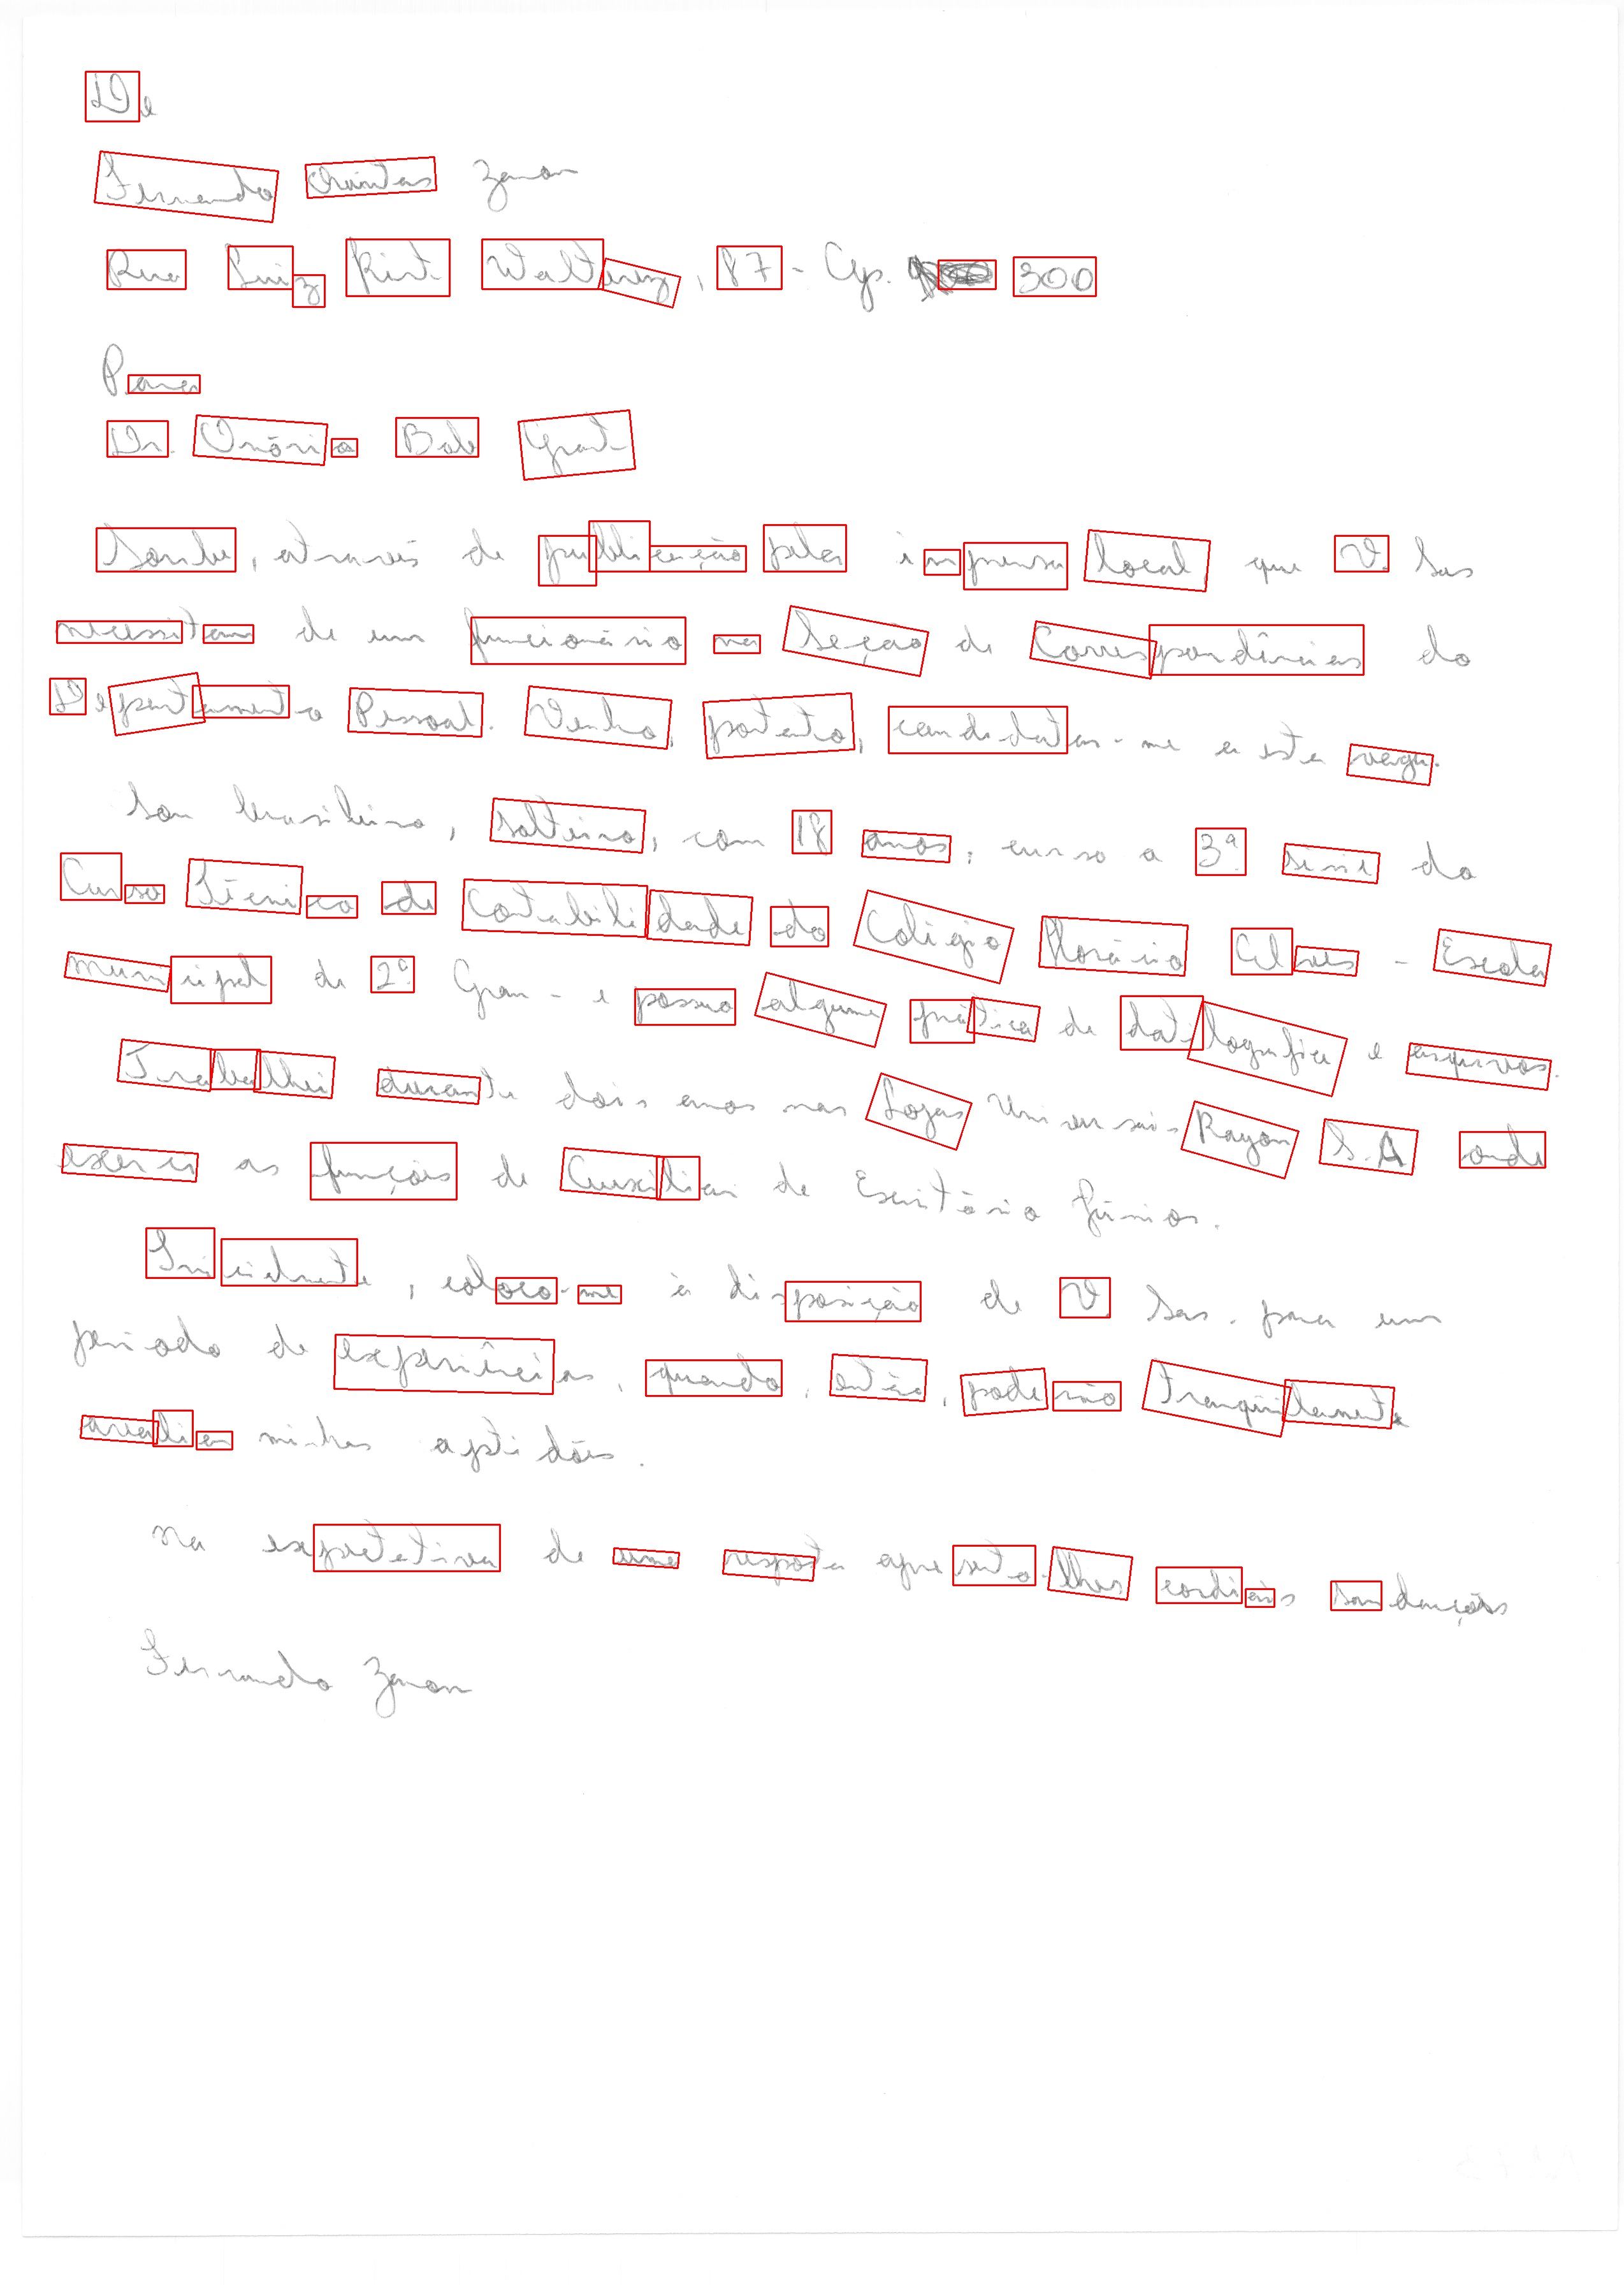 De
Fernando Chintas Zanon
Rua Luiz Kint Walterez, 87 - Cep. 300
Para
Dr. Onório Bale Grat
Soube, através de publicação pela imprensa local que V. Sas
necessitam de um funcionário na Seção de Correspondências do
Departamento Pessoal. Venho, portato, candidatar-me a esta vaga.
Sou brasileiro, solteiro, com 18 anos, curso a 3ª série do
Curso Técnico de Contabilidade do Colégio Horário Alves - Escola
municipal de 2º Grau - e possuo alguma prática de datilografia e arquivos.
Trabalhei durante dois anos nas Lojas Universais Rayon S.A onde
exerci as funções de Auxiliar de Escritório Júnior.
Inicialmente, coloco-me à disposição de V. Sas. para um
período de experiências, quando, então, poderão tranqüilamente
avaliar minhas aptidões.
Na expetetiva de uma resposta apresento-lhes cordiais saudações
Fernando Zanon